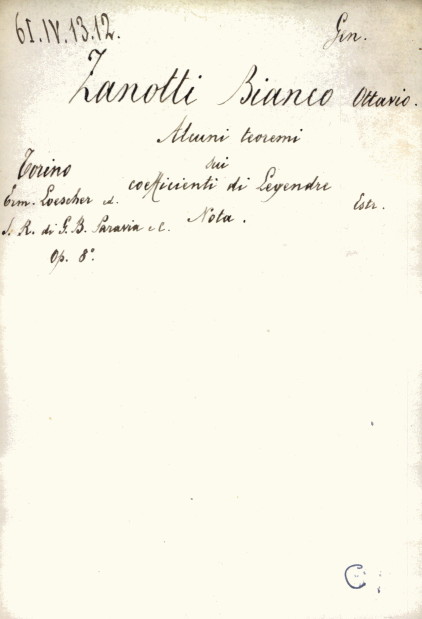 61.IV.13.12.
Gen.
Zanotti Bianco Ottavio.
Alcuni teoremi
sui
Torino
coefficienti di Legendre
Erm. Loescher ed.
Estr.
Nota.
S. R. di G. B. Paravia e C.
Op. 8°.
C